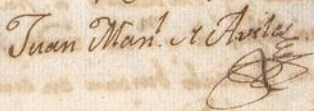 Juan Man.l de Avila